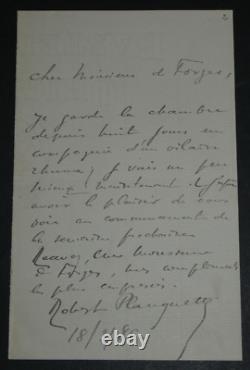 cher Monsieur d Forges,
Je garde la chambre
depuis huit jours en
compagnie d'un vilain
rhume; je vais un peu
mieux maintenant
avoir le plaisir de vous
voir au commencement de
la semaine prochaine
Recevez, cher Monsieur
d Forges, mes compliments
les plus empressés.
Robert Planquette
18/